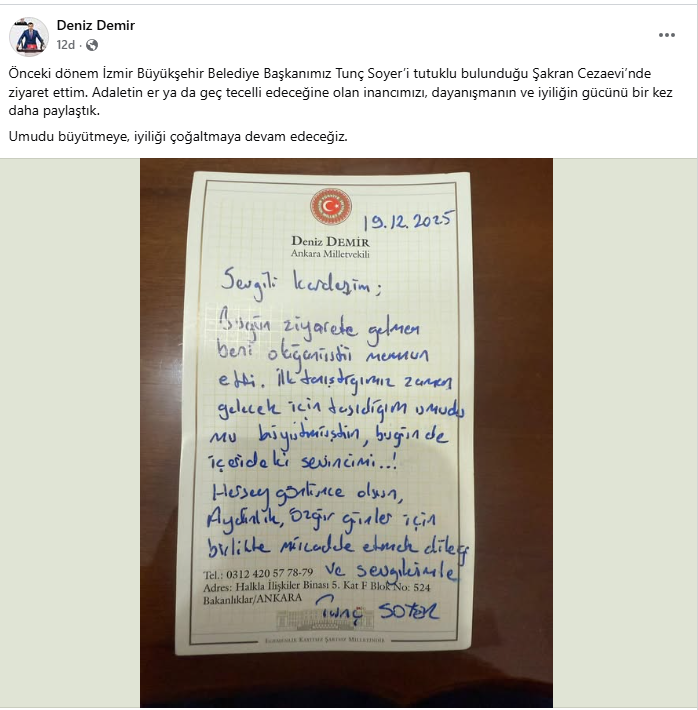 Deniz Demir
12d
Önceki dönem İzmir Büyükşehir Belediye Başkanımız Tunç Soyer'i tutuklu bulunduğu Şakran Cezaevi'nde
ziyaret ettim. Adaletin er ya da geç tecelli edeceğine olan inancımızı, dayanışmanın ve iyiliğin gücünü bir kez
daha paylaştık.
Umudu büyütmeye, iyiliği çoğaltmaya devam edeceğiz.
19.12.2025
Deniz DEMİR
Ankara Milletvekili
Sevgili kardeşim;
Bugün ziyarete gelmen
beni olağanüstü memnun
etti. İlk tanıştığımız zaman
gelecek için taşıdığım umudu
mu büyütmüştün, bugün de
içerideki sevincimi..!
Herşey gönlünce olsun,
Aydınlık, özgür günler için
birlikte mücadele etmek dileği
ve sevgilerimle
Tel.: 0312 420 57 78-79
Adres: Halkla İlişkiler Binası 5. Kat F Blok No: 524
Bakanlıklar/ANKARA
Tunç SOYER
Egemenlik Kayıtsız Şartsız Milletindir